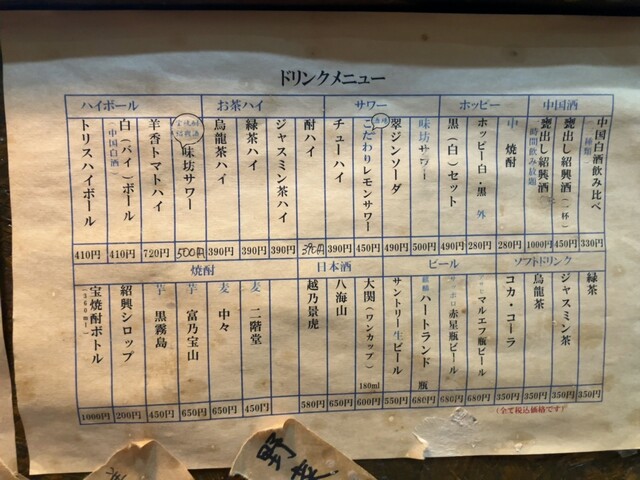 ドリンクメニュー
ハイボール
トリスハイボール 410円
白(バイ)ボール (中国白酒) 410円
羊香トマトハイ 720円
味坊サワー 500円
お茶ハイ
烏龍茶ハイ 390円
緑茶ハイ 390円
ジャスミン茶ハイ 390円
サワー
酎ハイ 390円
チューハイ 390円
こだわりレモンサワー 450円
翠ジンソーダ 490円
味坊サワー 500円
ホッピー
黒(白)セット 490円
ホッピー白・黒 外 280円
中 焼酎 280円
中国酒
甕出し紹興酒 時間飲み放題 1000円
甕出し紹興酒(一杯) 450円
中国白酒飲み比べ 330円
焼酎
宝焼酎ボトル 1000円
紹興シロップ 200円
芋 黒霧島 450円
芋 富乃宝山 650円
麦 中々 650円
麦 二階堂 450円
日本酒
越乃景虎 580円
八海山 650円
大関(ワンカップ) 180ml 600円
ビール
サントリー生ビール 550円
ハートランド 瓶 680円
赤星瓶ビール 680円
マルエフ瓶ビール 680円
ソフトドリンク
コカ・コーラ 350円
烏龍茶 350円
ジャスミン茶 350円
緑茶 350円
(全て税込価格です)
野